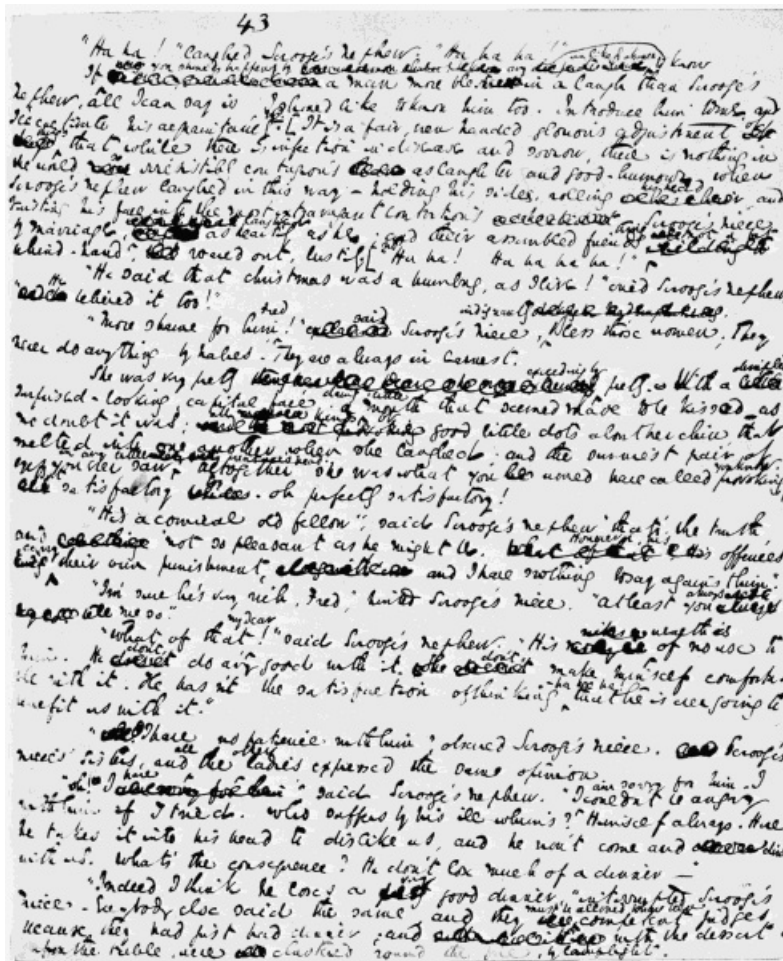 43
"Ha ha!" laughed Scrooge's nephew. "Ha ha ha!"
If you should happen, by any unlikely chance, to know
a man more blest in a laugh than Scrooge's
nephew, all I can say is I should like to know him too. Introduce him to me, and
I'll cultivate his acquaintance.
It is a fair, even handed adjustment of
things that while there is infection in disease and sorrow, there is nothing in
the world so irresistibly contagious as laughter and good-humour. When
Scrooge's nephew laughed in this way - holding his sides, rolling his head, and
twisting his face into the most extravagant contortions Scrooge's niece
by marriage, laughed as heartily as he. and their assembled friends
behind-hand, roared out, lustily. "Ha ha! Ha ha ha ha!"
"He said that Christmas was a humbug, as I live!" cried Scrooge's nephew
"He believed it too!"
"More shame for him, Fred!" said Scrooge's niece, indignantly. Bless those women; they
never do anything by halves. They are always in earnest.
She was very pretty exceedingly pretty. With a dimpled
surprised-looking, capital face a ripe little mouth that seemed made to be kissed - as
no doubt it was; all kinds of good little dots about her chin that
melted into one another when she laughed; and the sunniest pair of
eyes you ever saw in any little creature's head. altogether she was what you would have called provoking you know
but satisfactory too. oh perfectly satisfactory!
"He's a comical old fellow", said Scrooge's nephew "that's the truth
and not so pleasant as he might be. However, his offences
carry their own punishment, and I have nothing to say against him."
"I'm sure he's very rich, Fred," hinted Scrooge's niece. "at least you always
tell me so."
"What of that, my dear!" said Scrooge's nephew. "His wealth is of no use to
him. He don't do any good with it. He don't make himself comfort-
able with it. He hasn't the satisfaction of thinking - ha ha ha! - that he is ever going to
benefit us with it."
"I have no patience with him", observed Scrooge's niece. Scrooge's
niece's sisters, and all the other ladies expressed the same opinion
"Oh! I have" said Scrooge's nephew. "I am sorry for him. I couldn't be angry
with him if I tried. Who suffers by his ill whims? Himself always. Here
he takes it into his head to dislike us, and he won't come and dine
with us. What's the consequence? He don't lose much of a dinner -
"Indeed I think he loses a very good dinner," interrupted Scrooge's
niece. Everybody else said the same, and they must be allowed to have been competent judges,
because they had just had dinner, and with the dessert
upon the table, were clustered round the fire, by lamplight.